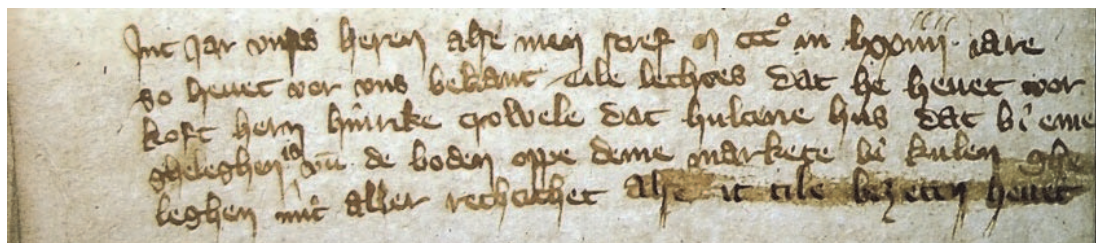 Int Jar vnses heren alse men scref m ccc° in lxxiiii iare
so heuet vor vns bekant tile lechoes dat he heuet vor
koft hern hinrike crowele dat hulcene hus dat bi eme
gheleghen is vn̄ de boden oppe deme markete bi kulen ghe
leghen mit aller rechtichet alse it tile bezeten heuet